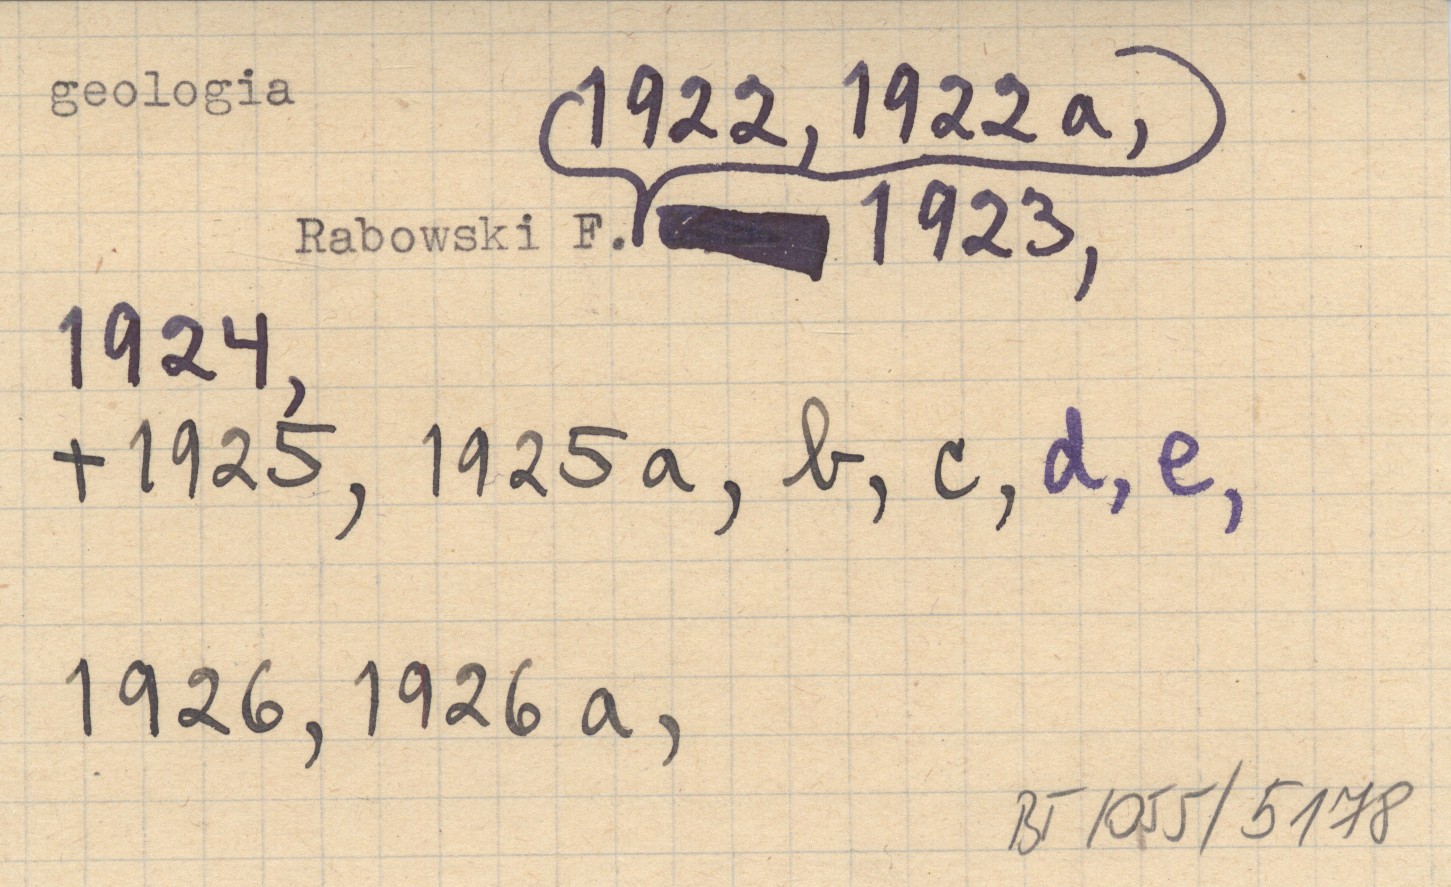 geologia
1922, 1922 a,
Rabowski F. 1923,
1924,
+1925, 1925 a, b, c, d, e,
1926, 1926 a,
BT/055/5178